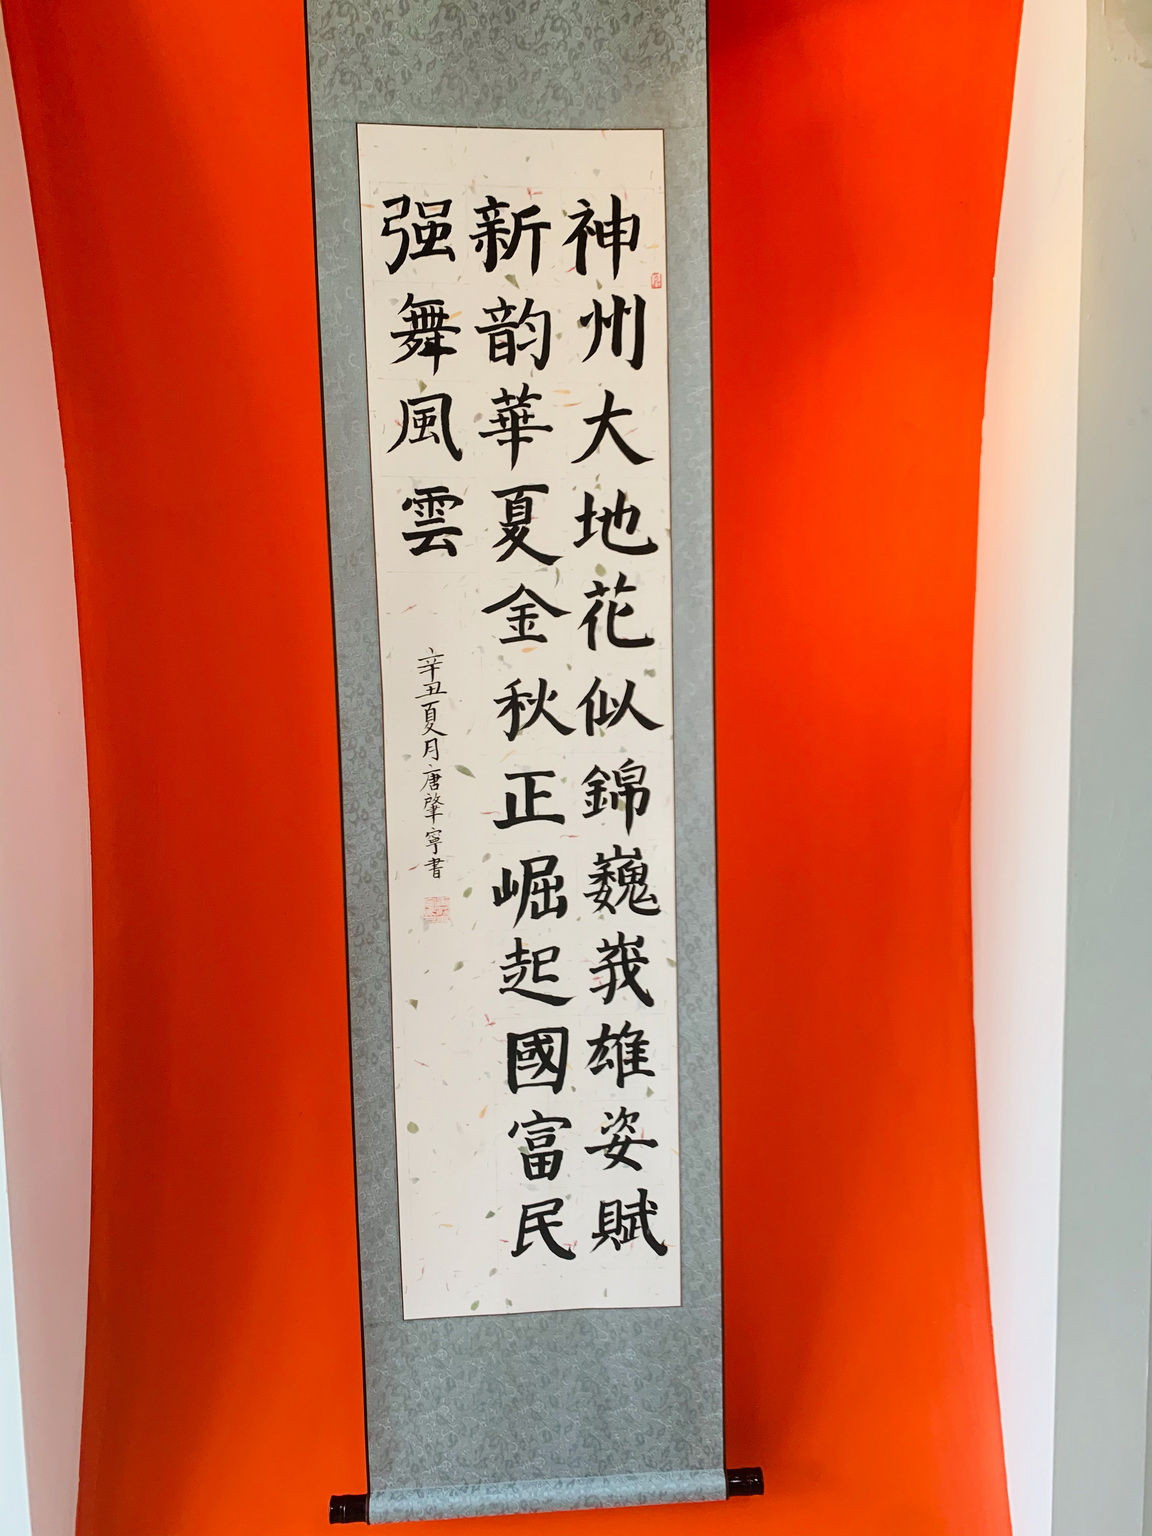 神州大地花似錦巍峩雄姿賦
新韵華夏金秋正崛起國富民
强舞風雲
辛丑夏月唐肇寧書